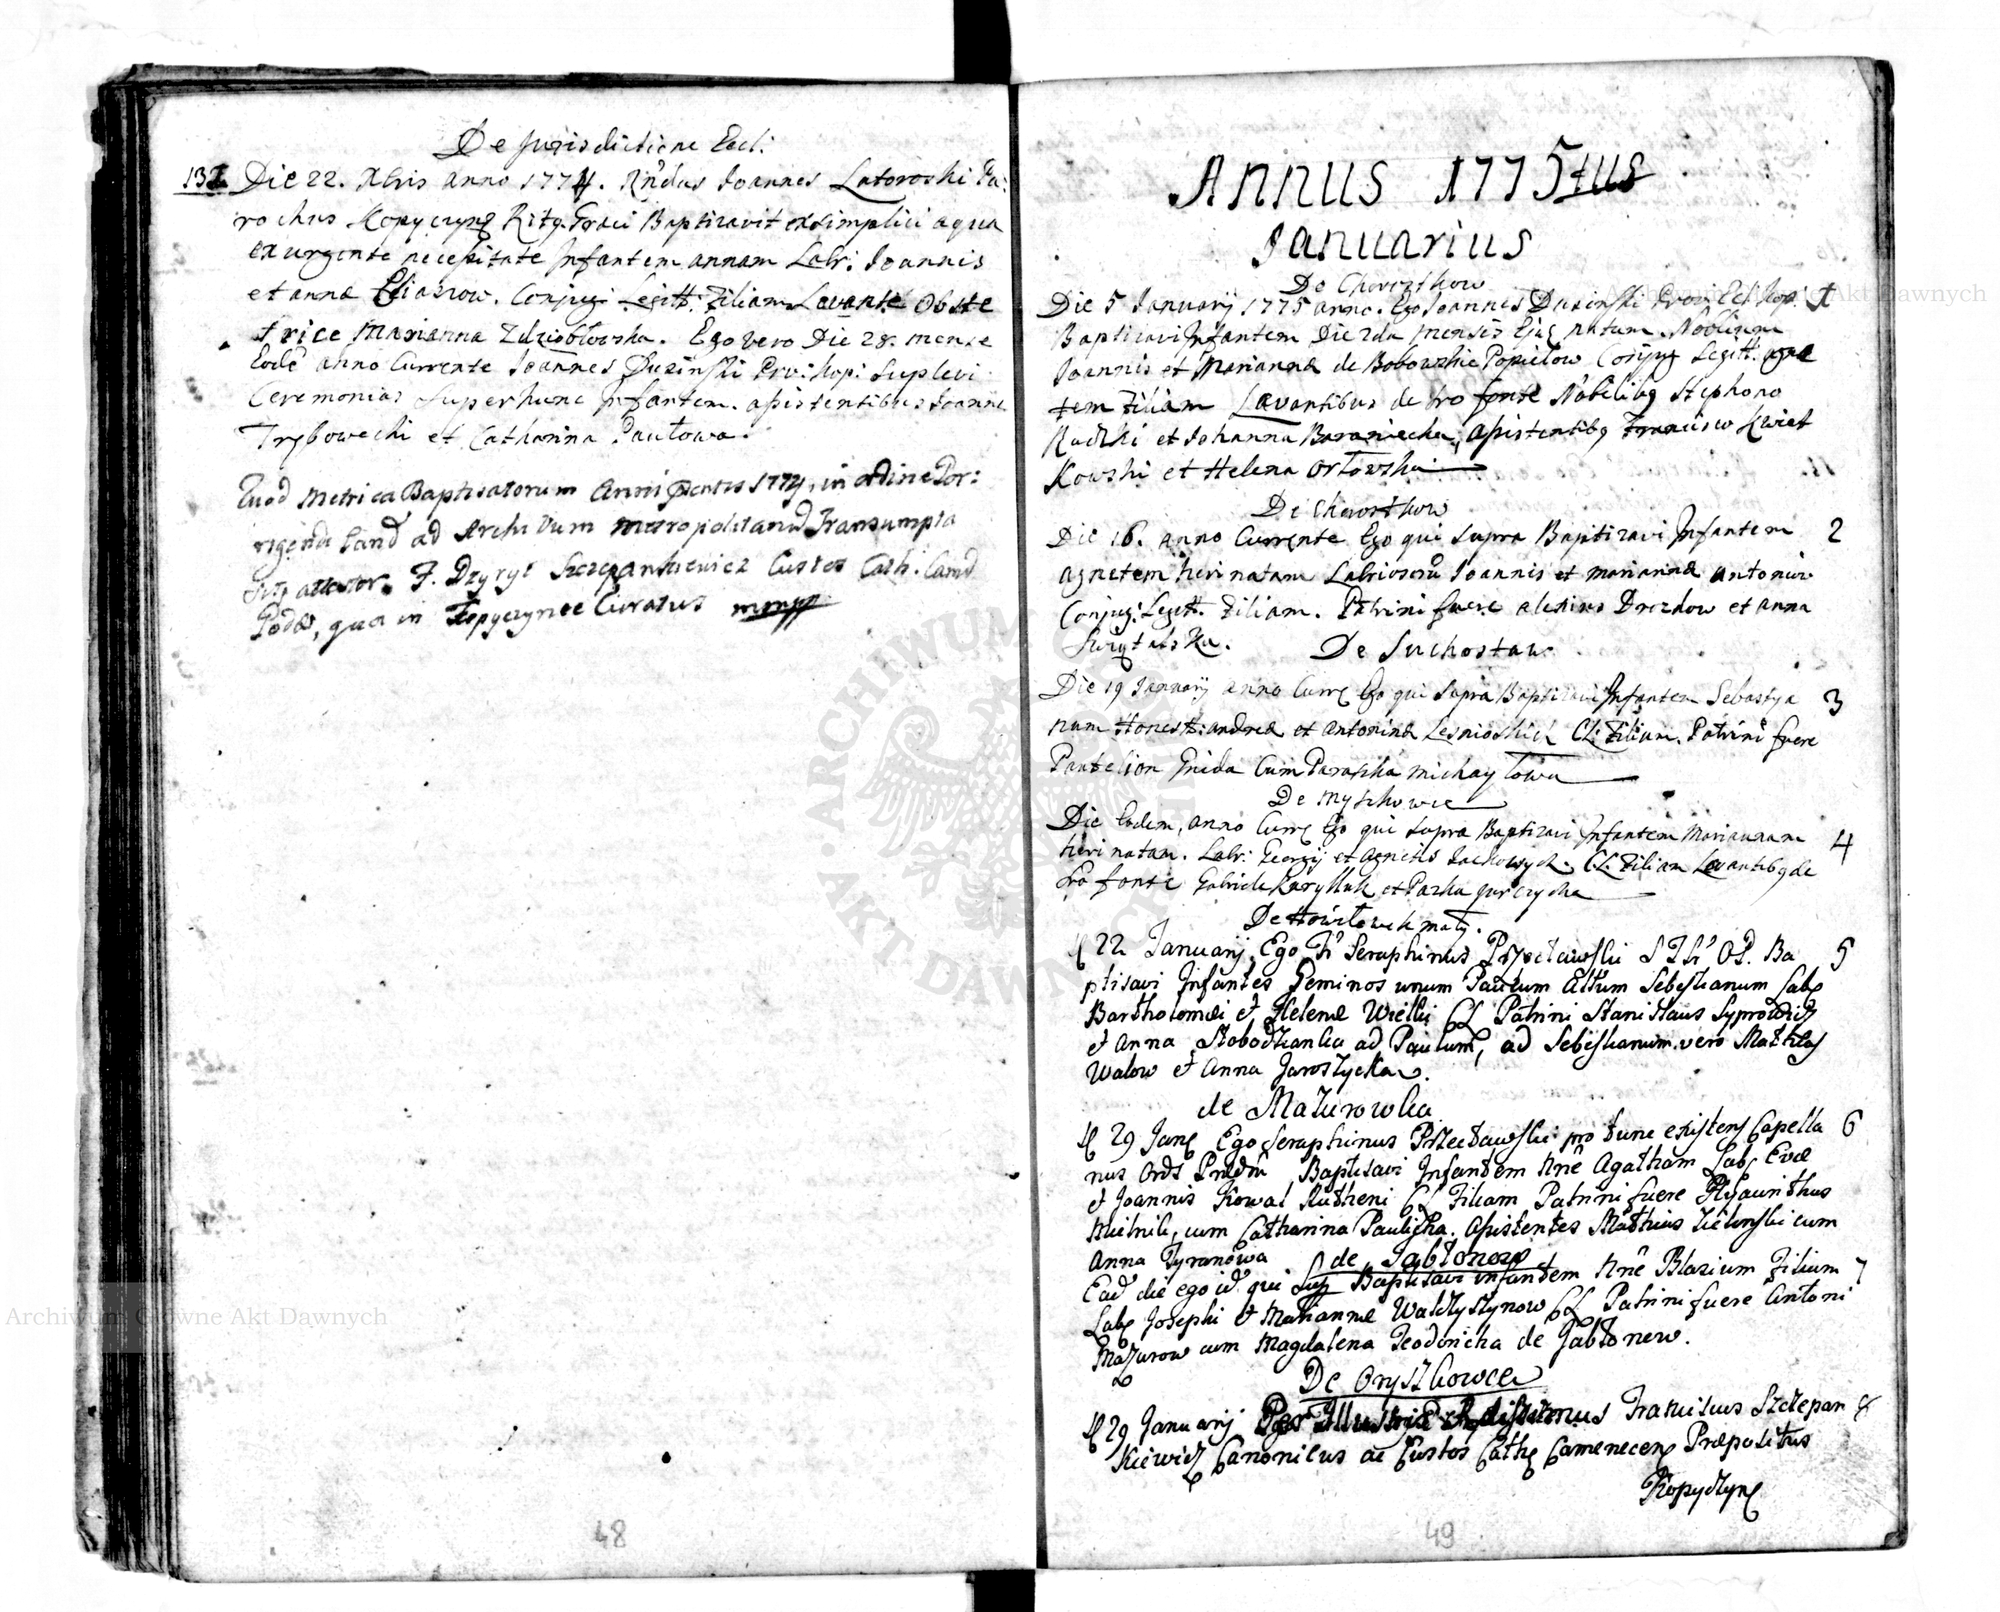 De Jurisdictione Eccl:
132 Die 22. Xbris anno 1774. Rndus Joannes Latoroski Pa:
rochus Kopyczyn Ritg Graeci Baptizavit ex simplici aqua
ex urgente necessitate Infantem annam Labr: Joannis
et annæ Eliaszow. Conjugi Legitt: Filiam Levante Obste
trice Marianna Zdziebłowska. Ego vero Die 28. mense
Eode anno Currente Joannes Duzinski Prv: kop: suplevi
Ceremonias super hunc Infantem. assistentibus Joanne
Trębowecki et Catharina Pawłowa.
Quod Metrica Baptisatorum Anni 1774, in ordine Por:
rigendi ad Archivum metropolitanu Transumpta
sit, attestor. F. Szczepankiewicz Custos Cath: Camd
Podol, qua in Kopyczynce Curatus mmpp
48
Annus 1775tus
Januarius
De Chorostkow
Die 5 Januarij 1775 anno. Ego Joannes Duzinski Prov: Ecl. Kop: 1
Baptizavi Infantem Die 2da mensis Ejus natam. Nobilium
Joannis et Mariannæ de Bobowskie Popielow Conjug Legitt: agne
tem Filiam Lævantibus de Sro fonte Nobilibg Stephano
Radzki et Johanna Baraniecka, assistentibg Francisco Kwiet
kowski et Helena Orłowska
De Chorostkow
Die 16. anno Currente Ego qui supra Baptizavi Infantem 2
agnetem heri natam Labriosoru Joannis et mariannæ antoniow
Conjug: Legitt. Filiam. Patrini fuere alexius Drozdow et anna
Swiętalska.
De Suchostaw
Die 19 Januarij anno Curre Ego qui supra Baptizavi Infantem Sebastya 3
num Honestt: andreæ et antoninæ Lesnioskich CL: Filium. Patrini fuere
Pantelion Gnida Cum Paraska michayłowa
De Myszkowce
Die Eodem, anno Curre Ego qui supra Baptizavi Infantem Mariannam 4
heri natam. Labr: Georgij et agnetis Jackowych. C.L. Filiam Levantibg de
Sro fonte Gabriele Karylluk et Pazka Jurczycha
De Howiłowek mały.
D 22 Januarij Ego Fr Seraphinus Przecławski S Th OP. Ba 5
ptisavi Infantes Geminos unum Paulum altum Sebestianum Lab
Bartholomæi et Helenæ Wielki CL Patrini Stanislaus Syprowicz
et Anna Słobodzianka ad Paulum, ad Sebestianum vero Mathias
Walow et Anna Jaroszycka.
de Mazurowka
D 29 Jan Ego Seraphinus Przecławski pro tunc existens Capella 6
nus Ords Prædm Baptisavi Infantem Nne Agatham Lab Evæ
et Joannis Kowal Rutheni CL Filiam Patrini fuere Hyacinthus
Mielnik, cum Catharina Paulicha. Assistentes Mathias Zielenski cum
Anna Tyranowa
de Jabłonow
Ead die ego id qui sup Baptisavi infantem Nne Blasium Filium 7
Lab Josephi et Mariannæ Waldyszynow CL Patrini fuere Antoni
Mazurow cum Magdalena Teodoricha de Jabłonew.
De Oryszkowce
D 29 Januarij Per Illustris Rndissimus Franciscus Szczepan 8
kiewicz Canonicus ac Custos Cath Camenecen Præpositus
Kopyczyn
49
ARCHIWUM GŁÓWNE AKT DAWNYCH
Archiwum Główne Akt Dawnych
Archiwum Główne Akt Dawnych